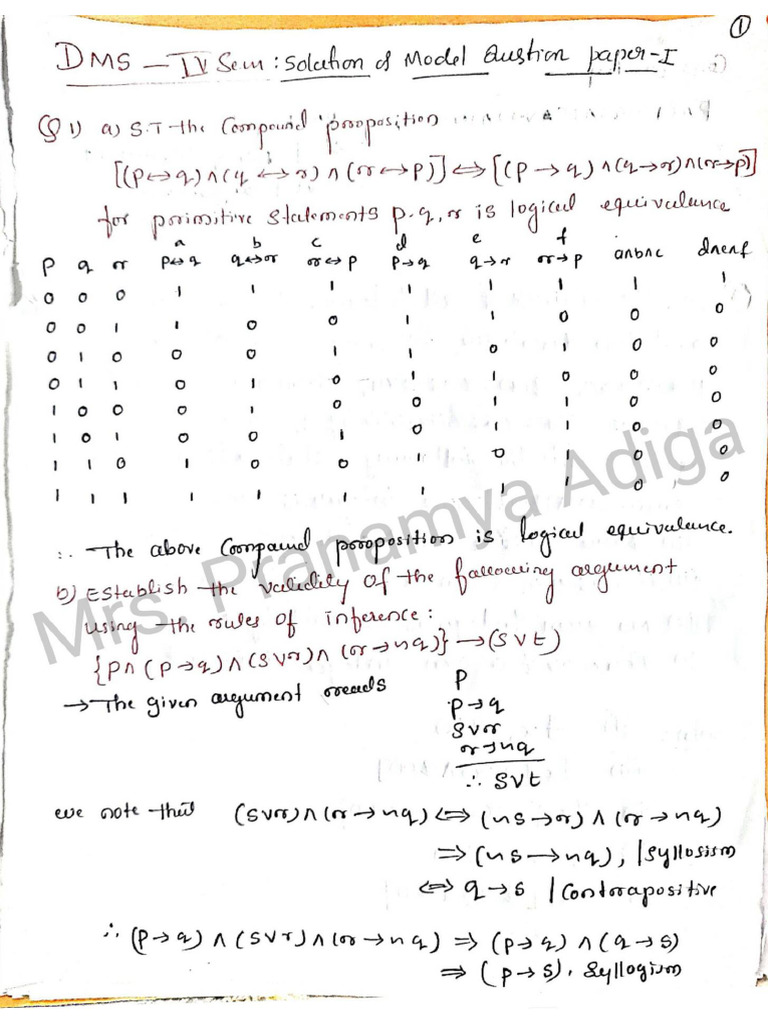 ①
DMS - IV Sem : Solution of Model Qustion paper-I
Q 1) a) S.T the Compound proposition
[(P↔q)∧(q↔r)∧(r↔P)] ⇔ [(P→q)∧(q→r)∧(r→P)]
for primitive statements p.q,r is logical equivalence
a b c d e f
P q r P↔q q↔r r↔P P→q q→r r→P a∧b∧c d∧e∧f
0 0 0 1 1 1 1 1 1 1 1
0 0 1 1 0 0 1 1 0 0 0
0 1 0 0 0 1 1 0 1 0 0
0 1 1 0 1 0 1 1 0 0 0
1 0 0 0 1 0 0 1 1 0 0
1 0 1 0 0 1 0 1 1 0 0
1 1 0 1 0 0 1 0 1 0 0
1 1 1 1 1 1 1 1 1 0 0
∴ The above Compound proposition is logical equivalence.
b) Establish the validity of the following argument
using the rules of inference :
{P∧(P→q)∧(SVr)∧(r→nq)} → (SVt)
→ The given argument reads P
P→q
SVr
r→nq
∴ SVt
we note that (SVr)∧(r→nq) ⇔ (ns→r)∧(r→nq)
⇒ (ns→nq), |Syllosism
⇔ q→s |Contrapositive
∴ (P→q)∧(SVr)∧(r→nq) ⇒ (P→q)∧(q→s)
⇒ (P→S). Syllogism
Mrs. Pranamya Adiga